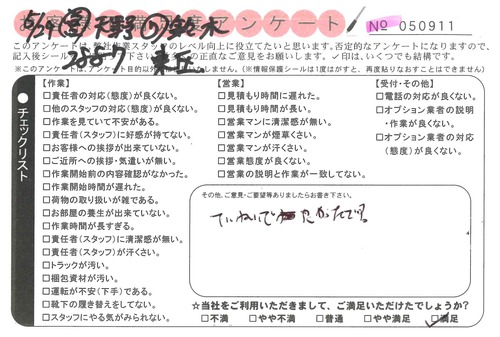 お客様満足度アンケート
№ 050911
このアンケートは、弊社作業スタッフのレベル向上に役立てたいと思います。否定的なアンケートになりますので、
記入後シールをして下さい。お客様の正直なご意見をお願いします。✓印は、いくつでも結構です。
※このアンケートは、アンケート目的以外には致しません。(※情報保護シールは1度はがすと、再度貼りなおすことはできません)
チェックリスト
【作業】
□責任者の対応(態度)が良くない。
□他のスタッフの対応(態度)が良くない。
□作業を見ていて不安がある。
□責任者(スタッフ)に好感が持てない。
□お客様への挨拶が出来ていない。
□ご近所への挨拶・気遣いが無い。
□作業開始前の内容確認がなかった。
□作業開始時間が遅れた。
□荷物の取り扱いが雑である。
□お部屋の養生が出来ていない。
□作業時間が長すぎる。
□責任者(スタッフ)に清潔感が無い。
□責任者(スタッフ)が汗くさい。
□トラックが汚い。
□梱包資材が汚い。
□運転が不安(下手)である。
□靴下の履き替えをしてない。
□スタッフにやる気がみられない。
【営業】
□見積もり時間に遅れた。
□見積もり時間が長い。
□営業マンに清潔感が無い。
□営業マンが煙草くさい。
□営業マンが汗くさい。
□営業態度が良くない。
□営業の説明と作業が一致してない。
【受付・その他】
□電話の対応が良くない。
□オプション業者の説明
・作業が良くない。
□オプション業者の対応
(態度)が良くない。
その他、ご意見・ご要望等ありましたらお書き下さい。
ていねいで よかったです。
☆当社をご利用いただきまして、ご満足いただけたでしょうか?
□不満 □やや不満 □普通 □やや満足 □満足